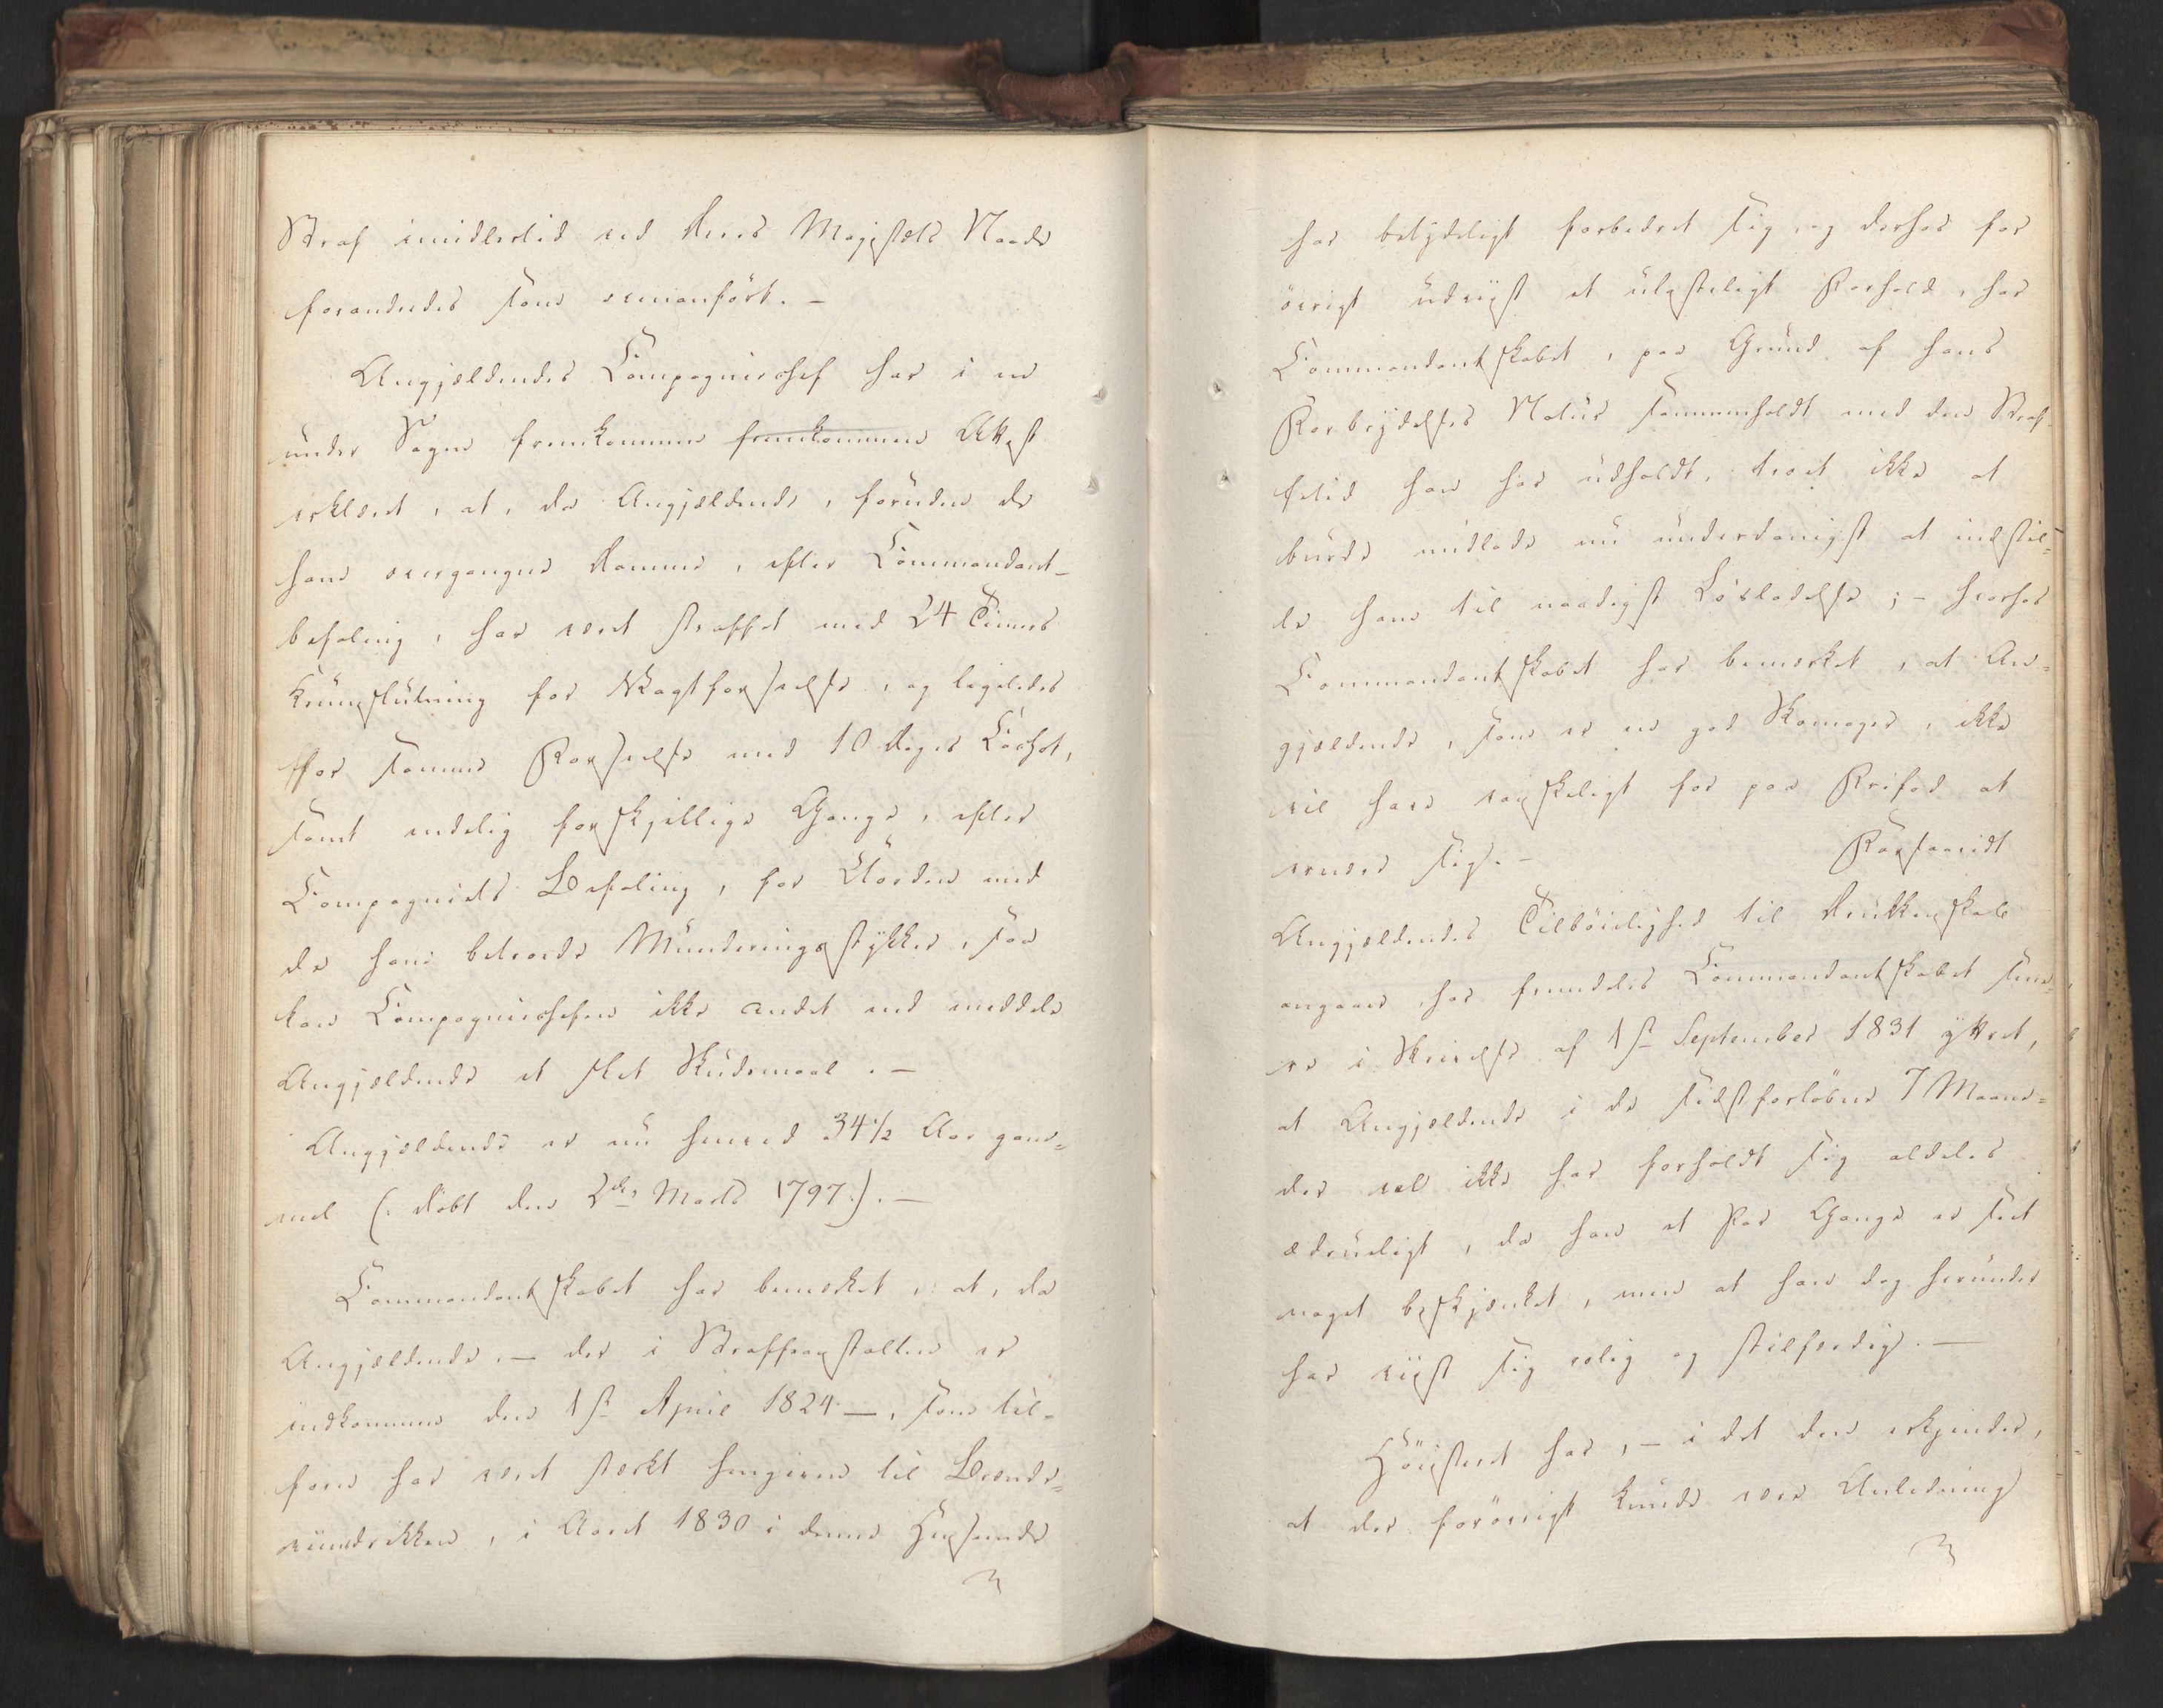 Straf imidlertid ved Deres Majestæts Naade
forandredes som ovenanført. –
Angjældendes Compagniechef har i en
under Sagen fremkommen fremkommen Attest
erklæret, at, da Angjældende, foruden de
ham overgangne Domme, efter Commandant-
befaling, har været straffet med 24 Timers
Krumslutning for Vagtforseelse, og ligeledes
for samme Forseelse med 10 Dages Cachot,
samt endelig forskjellige Gange, efter
Compagniets Befaling, for Uorden med
de ham betroede Munderingsstykker, saa
kan Compagniechefen ikke andet end meddele
Angjældende et slet Skudsmaal. –
Angjældende er nu henved 34½ Aar gam-
mel (: døbt den 2den Marts 1797 :). –
Commandantskabet har bemærket, at, da
Angjældende, – der i Straffeanstalten er
indkommen den 1ste April 1824 –, som til-
forn har været stærkt hengiven til Brænde-
viinsdrikken, i Aaret 1830 i denne Henseende
har betydeligt forbedret sig, og derhos for
øvrigt udviist et ulasteligt Forhold, har
Commandantskabet, paa Grund af hans
Forbrydelses Natur sammenholdt med den Straf-
fetid han har udholdt, troet ikke at
burde undlade nu underdanigst at indstil-
le ham til naadigst Løsladelse; – hvorhos
Commandantskabet har bemærket, at An-
gjældende, som er en god Skomager, ikke
vil have vanskeligt for paa Frifod at
ernære sig. – Forsaavidt
Angjældendes Tilbøielighed til Drukkenskab
angaaer, har fremdeles Commandantskabet sene-
re i Skrivelse af 1ste September 1831 yttret,
at Angjældende i de sidstforløbne 7 Maane-
der vel ikke har forholdt sig aldeles
ædrueligt, da han et Par Gange er seet
noget beskjænket, men at han dog herunder
har viist sig rolig og stilfærdig. –
Høiesteret har, – i det den erkjender,
at der forøvrigt kunde være Anledning